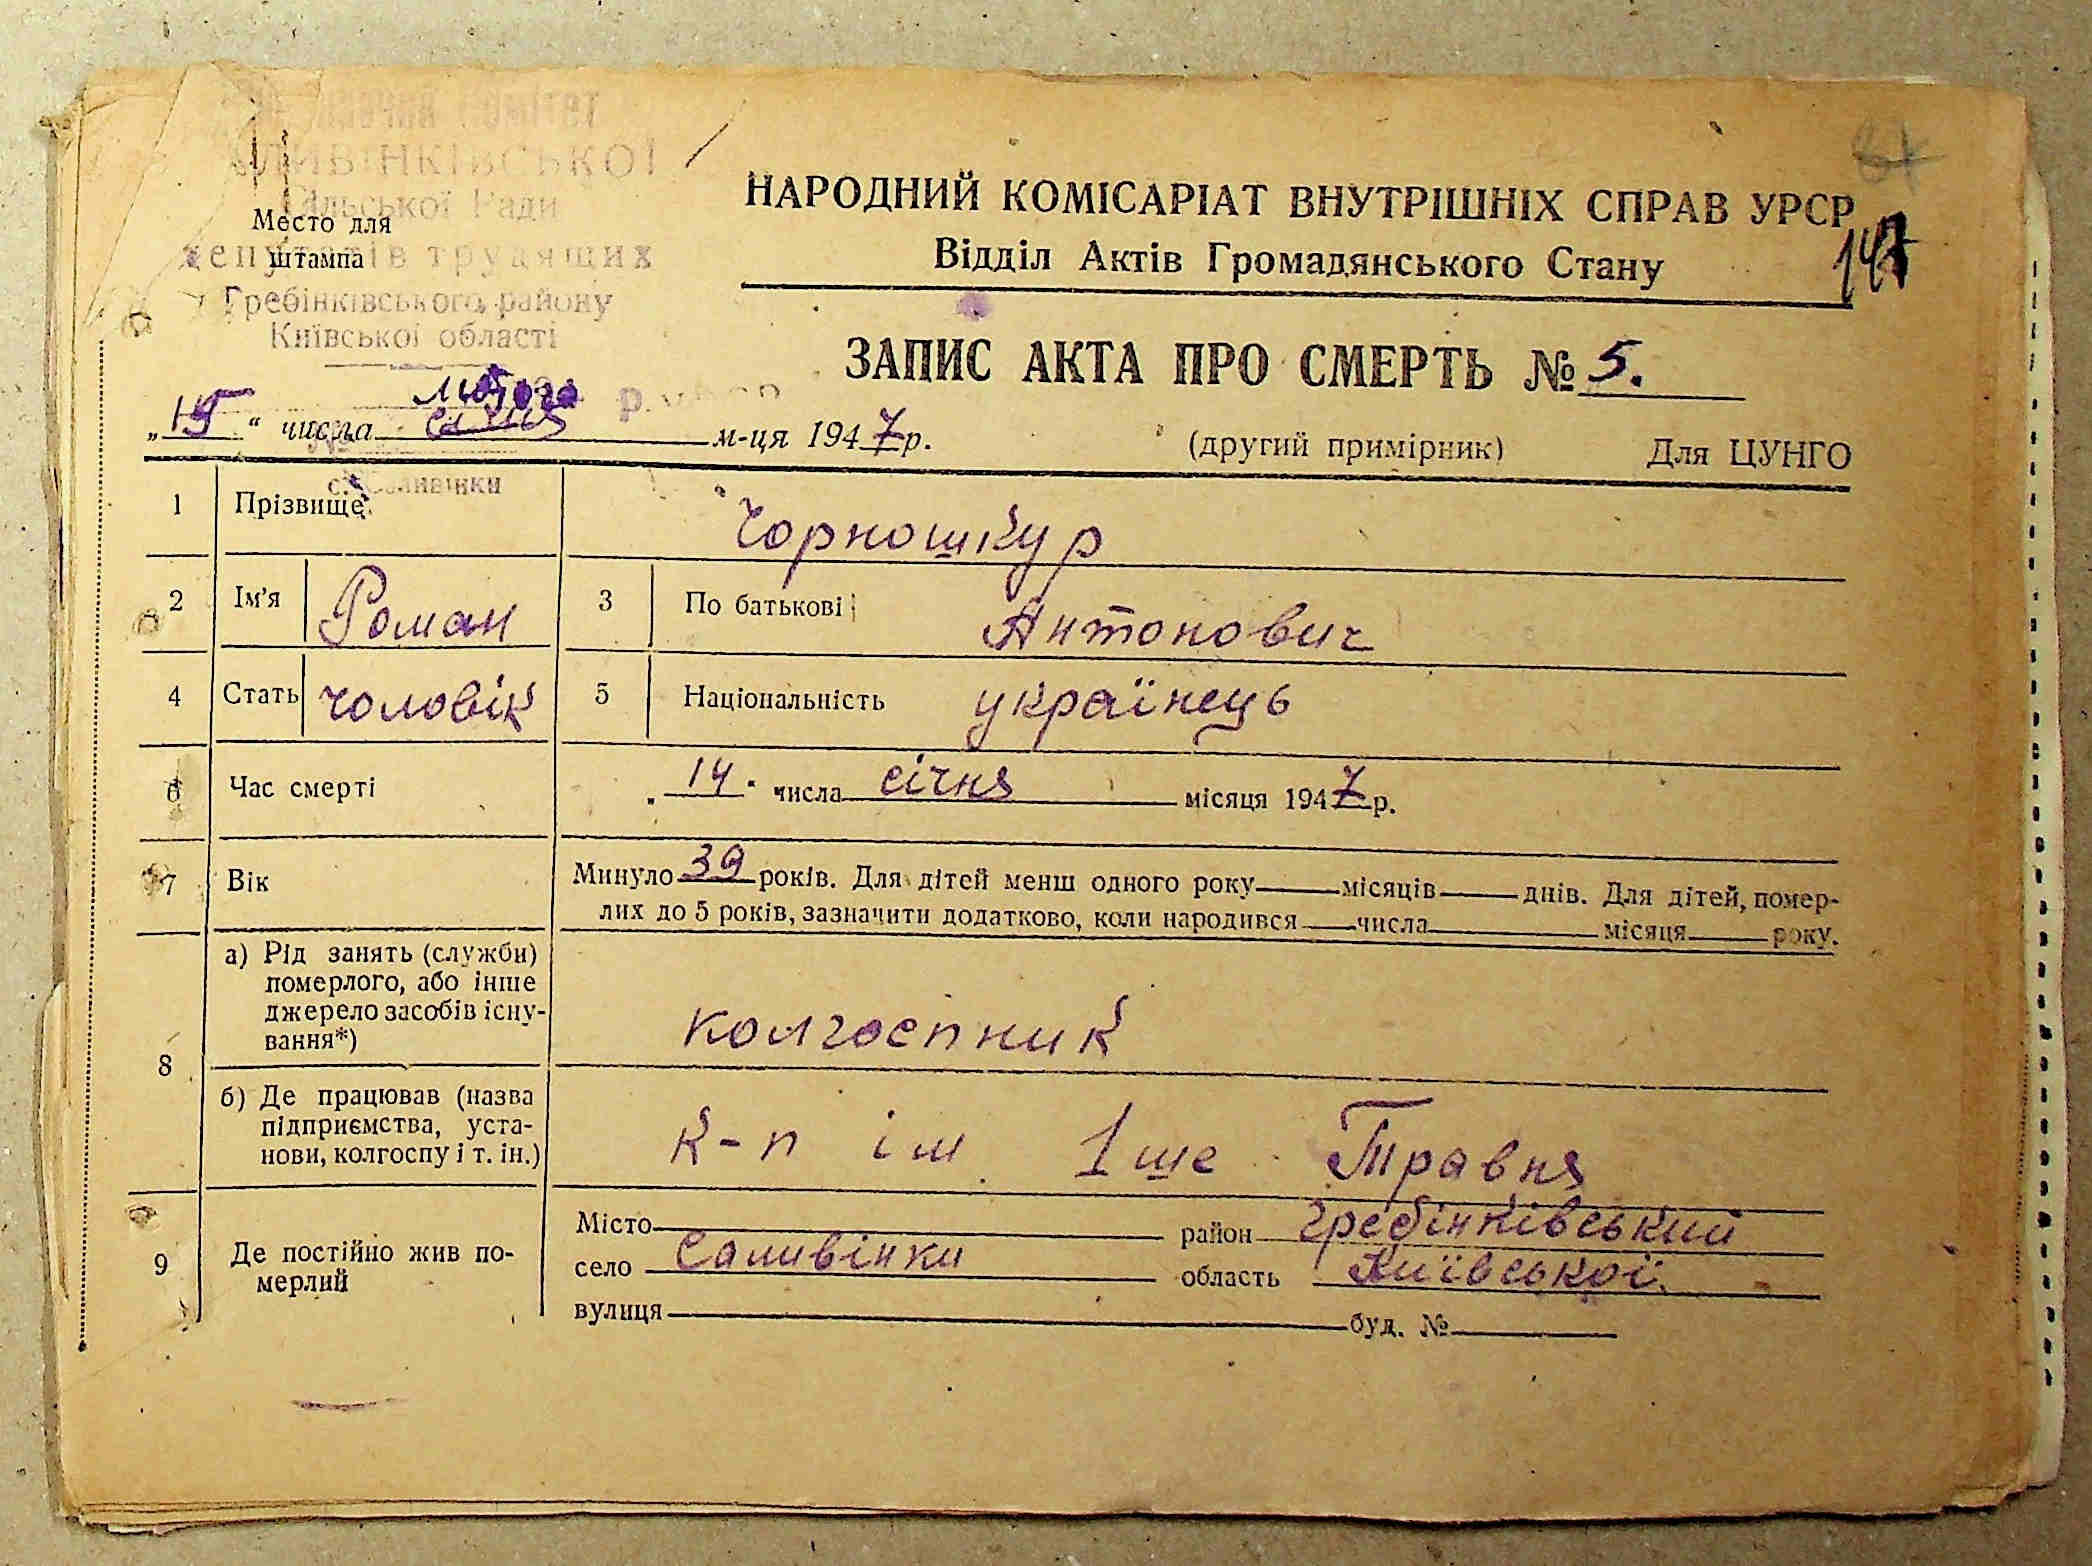 Сільської Ради
Место для
штампа
депутатів трудящих
Гребінківського району
Київської області
НАРОДНИЙ КОМІСАРІАТ ВНУТРІШНІХ СПРАВ УРСР
147
Відділ Актів Громадянського Стану
ЗАПИС АКТА ПРО СМЕРТЬ № 5.
лютого
„15" числа січня м-ця 1947 р. (другий примірник) Для ЦУНГО
1 Прізвище Чорношкур
2 Ім'я Роман 3 По батькові Антонович
4 Стать чоловік 5 Національність українець
6 Час смерті „14" числа січня місяця 1947 р.
7 Вік Минуло 39 років. Для дітей менш одного року місяців днів. Для дітей, помер-
лих до 5 років, зазначити додатково, коли народився числа місяця року.
8 а) Рід занять (служби)
померлого, або інше
джерело засобів існу-
вання*)
колгоспник
б) Де працював (назва
підприємства, уста-
нови, колгоспу і т. ін.)
к-п ім 1ше Травня
9 Де постійно жив по-
мерлий
Місто район Гребінківський
село Саливінки область Київської
вулиця буд. №